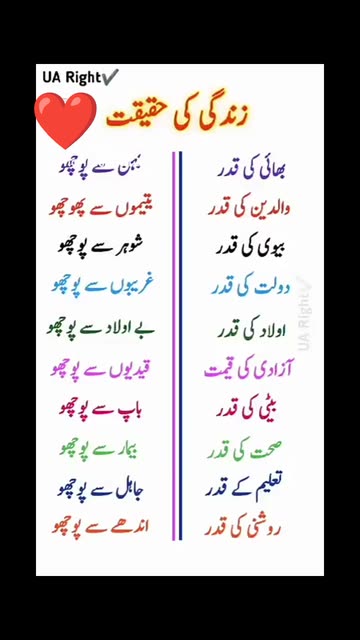 UA Right✔
زندگی کی حقیقت
بھائی کی قدر بہن سے پوچھو
والدین کی قدر یتیموں سے پھوچھو
بیوی کی قدر شوہر سے پوچھو
دولت کی قدر غریبوں سے پوچھو
اولاد کی قدر بے اولاد سے پوچھو
آزادی کی قیمت قیدیوں سے پوچھو
بیٹی کی قدر باپ سے پوچھو
صحت کی قدر بیمار سے پوچھو
تعلیم کے قدر جاہل سے پوچھو
روشنی کی قدر اندھے سے پوچھو
UA Right✔